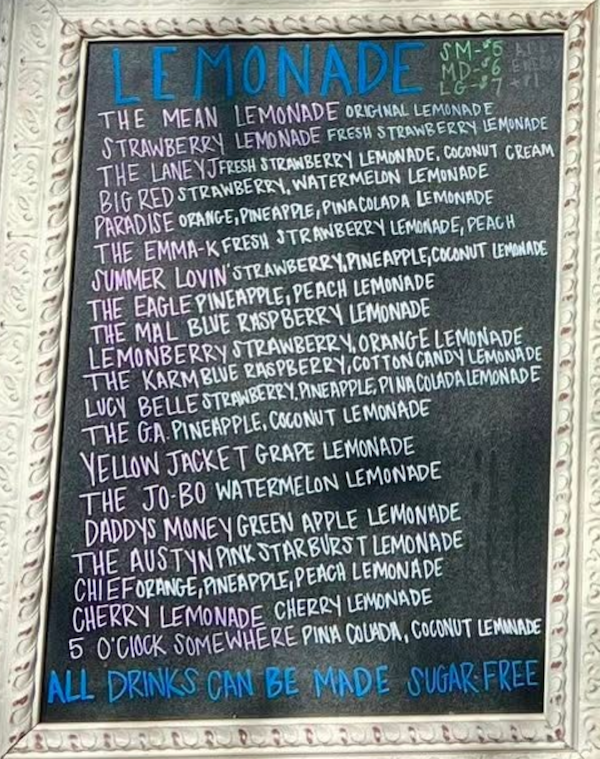 LEMONADE
SM-$5 ADD
MD-$6 ENERGY
LG-$7 +$1
THE MEAN LEMONADE ORIGINAL LEMONADE
STRAWBERRY LEMONADE FRESH STRAWBERRY LEMONADE
THE LANEYJ FRESH STRAWBERRY LEMONADE, COCONUT CREAM
BIG RED STRAWBERRY, WATERMELON LEMONADE
PARADISE ORANGE, PINEAPPLE, PINA COLADA LEMONADE
THE EMMA-K FRESH STRAWBERRY LEMONADE, PEACH
SUMMER LOVIN' STRAWBERRY, PINEAPPLE, COCONUT LEMONADE
THE EAGLE PINEAPPLE, PEACH LEMONADE
THE MAL BLUE RASPBERRY LEMONADE
LEMONBERRY STRAWBERRY, ORANGE LEMONADE
THE KARM BLUE RASPBERRY, COTTON CANDY LEMONADE
LUCY BELLE STRAWBERRY, PINEAPPLE, PINA COLADA LEMONADE
THE G.A. PINEAPPLE, COCONUT LEMONADE
YELLOW JACKET GRAPE LEMONADE
THE JO-BO WATERMELON LEMONADE
DADDYS MONEY GREEN APPLE LEMONADE
THE AUSTYN PINK STARBURST LEMONADE
CHIEF ORANGE, PINEAPPLE, PEACH LEMONADE
CHERRY LEMONADE CHERRY LEMONADE
5 O'CLOCK SOMEWHERE PINA COLADA, COCONUT LEMONADE
ALL DRINKS CAN BE MADE SUGAR-FREE